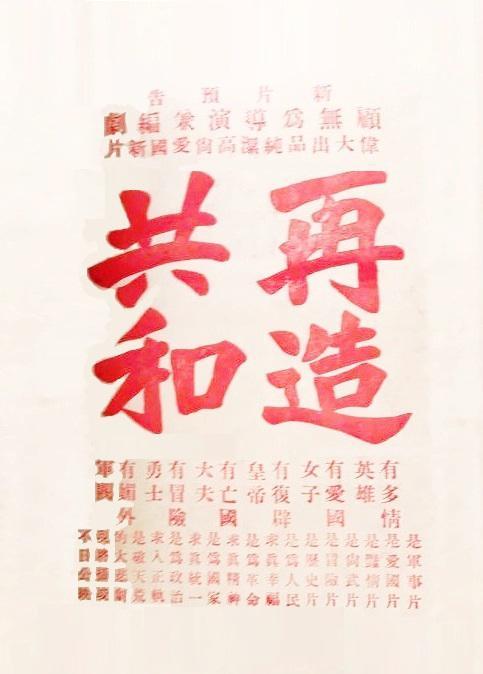 新片預告
顧無爲導演兼編劇
偉大出品純潔高尙愛國新片
再造
共和
有多情英雄
有愛國女子
有復辟皇帝
有亡國大夫
有冒險勇士
有媚外軍閥
是軍事片
是愛國片
是豔情片
是尙武片
是冒險片
是歷史片
是爲人民
求眞幸福
是爲革命
求眞精神
是爲國家
求眞統一
是爲政治
求入正軌
是破天荒
的大悲劇
現將攝竣
不日公映